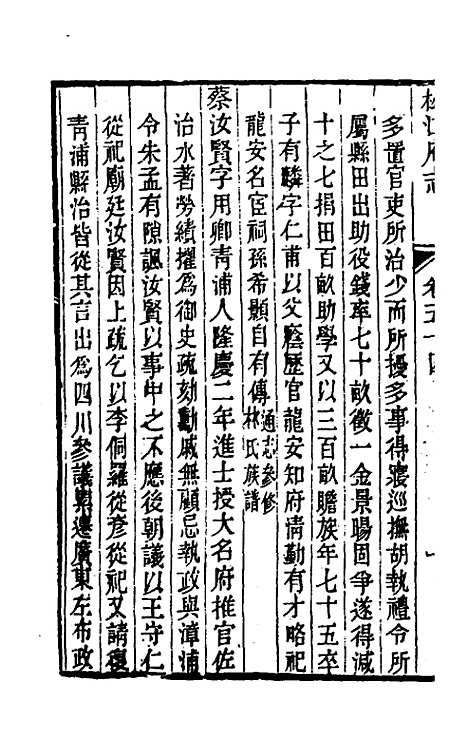 松江府志
卷五十四
多置官吏所治少而所擾多事得寢巡撫胡執禮令所
屬縣田出助役錢率七十畝徵一金景暘固爭遂得減
十之七捐田百畝助學又以三百畝贍族年七十五卒
子有麟字仁甫以父廕歷官龍安知府清勤有才略祀
龍安名宦祠孫希顥自有傳通志參修林氏族譜
蔡汝賢字用卿青浦人隆慶二年進士授大名府推官佐
治水著勞績擢為御史疏劾勳戚無顧忌執政與漳浦
令朱孟有隙諷汝賢以事中之不應後朝議以王守仁
從祀廟廷汝賢因上疏乞以李侗羅從彥從祀又請復
青浦縣治皆從其言出為四川參議累遷廣東左布政